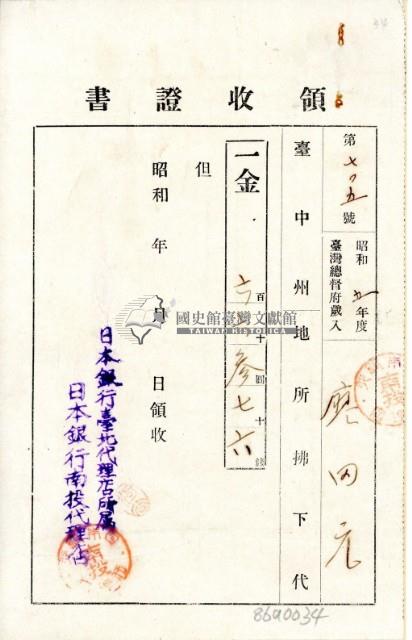 領收證書
第七〇五號
昭和 五年度
臺灣總督府歲入
廖四元
臺中州地所拂下代
一金
百十圓十錢
六 參七六
但
昭和 年 月 日領收
日本銀行臺北代理店所属
日本銀行南投代理店
國史館臺灣文獻館
TAIWAN HISTORICA
8690034
34